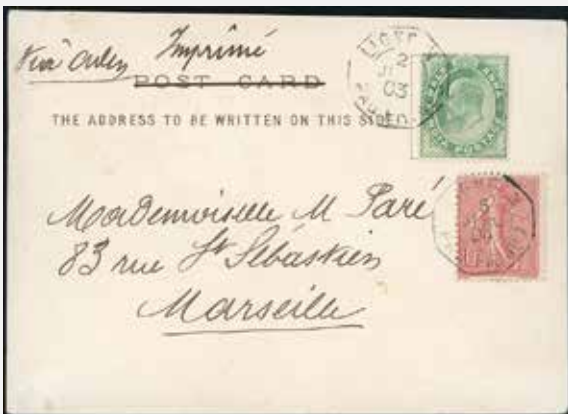 Imprimé
Via Aden
POST CARD
THE ADDRESS TO BE WRITTEN ON THIS SIDE
LIGNE
2
03
Mademoiselle M Paré
83 rue St Sébastien
Marseille